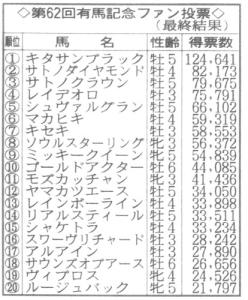 ◇第62回有馬記念ファン投票◇
(最終結果)
順位 馬名 性齢 得票数
① キタサンブラック 牡5 124,641
② サトノダイヤモンド 牡4 82,173
③ サトノクラウン 牡5 79,675
④ レイデオロ 牡3 75,791
⑤ シュヴァルグラン 牡5 66,102
⑥ マカヒキ 牡4 59,319
⑦ キセキ 牡3 58,553
⑧ ソウルスターリング 牝3 56,372
⑨ ミッキークイーン 牝5 54,839
⑩ ゴールドアクター 牡6 44,085
⑪ モズカッチャン 牝3 41,035
⑫ ヤマカツエース 牡5 34,050
⑬ レインボーライン 牡4 33,898
⑭ リアルスティール 牡5 33,511
⑮ シャケトラ 牡4 33,234
⑯ スワーヴリチャード 牡3 28,242
⑰ アルアイン 牡3 27,890
⑱ サウンズオブアース 牡6 26,656
⑲ ヴィブロス 牝4 24,526
⑳ ルージュバック 牝5 21,797